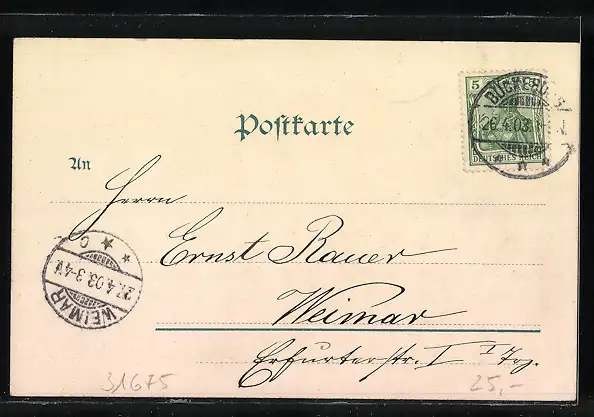 5
DEUTSCHES REICH
26.4.03.
Postkarte
An
Herrn
Ernst Rauer
Weimar
Erfurterstr. I
WEIMAR
27.4.03. 3-4 N
* c *
31675
25,-